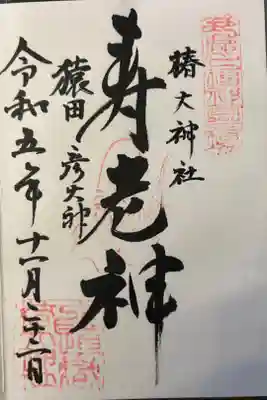 椿大神社
寿老神
猿田彦大神
令和五年十一月二十二日